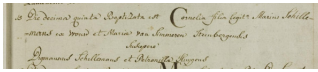 Die decima quinta Baptizata est Cornelia filia legit: Marini Schille-
mans ex Woud et Mariæ van Simmeren Steenbergensis
Susceperunt
Dominus Schillemans et Petronilla Huygens